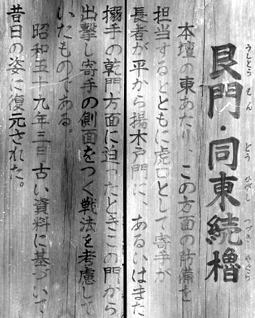 艮門・同東続櫓
うしとら もん どう ひがし つづき やぐら
本壇の東あたり、この方面の防備を
担当するとともに虎口として寄手が
長者が平から揚木戸門に、あるいはまた
搦手の乾門方面に迫ったときこの門から
出撃し寄手の側面をつく戦法を考慮して
いたものである。
昭和五十九年三月古い資料に基づいて
昔日の姿に復元された。